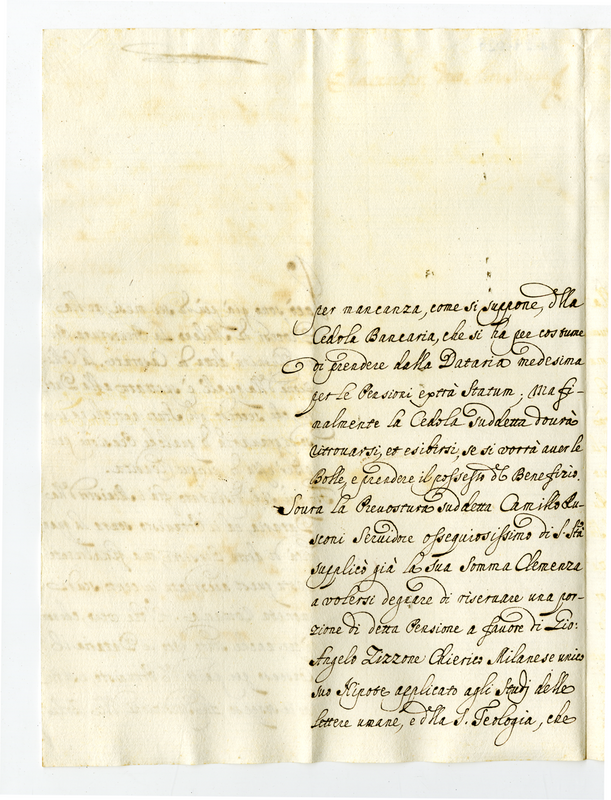 per mancanza, come si suppone, dlla
Cedola Bancaria, che si ha per costume
di prendere dalla Dataria medesima
per le Pensioni extrà Statum; Ma fi-
nalmente la Cedola suddetta dourà
ritrouarsi, et esibirsi, se si vorrà auer le
Bolle, e prendere il possesso dl Benefizio.
Soura la Preuostura suddetta Camillo Ru-
sconi Seruidore ossequiosissimo di S. Stà
supplicò già la sua somma Clemenza
a volersi degnare di riseruare una por-
zione di detta Pensione a fauore di Gio:
Angelo Zizzone Chierico Milanese unico
suo Nipote applicato agli Studj delle
lettere umane, e dlla S. Teologia, che